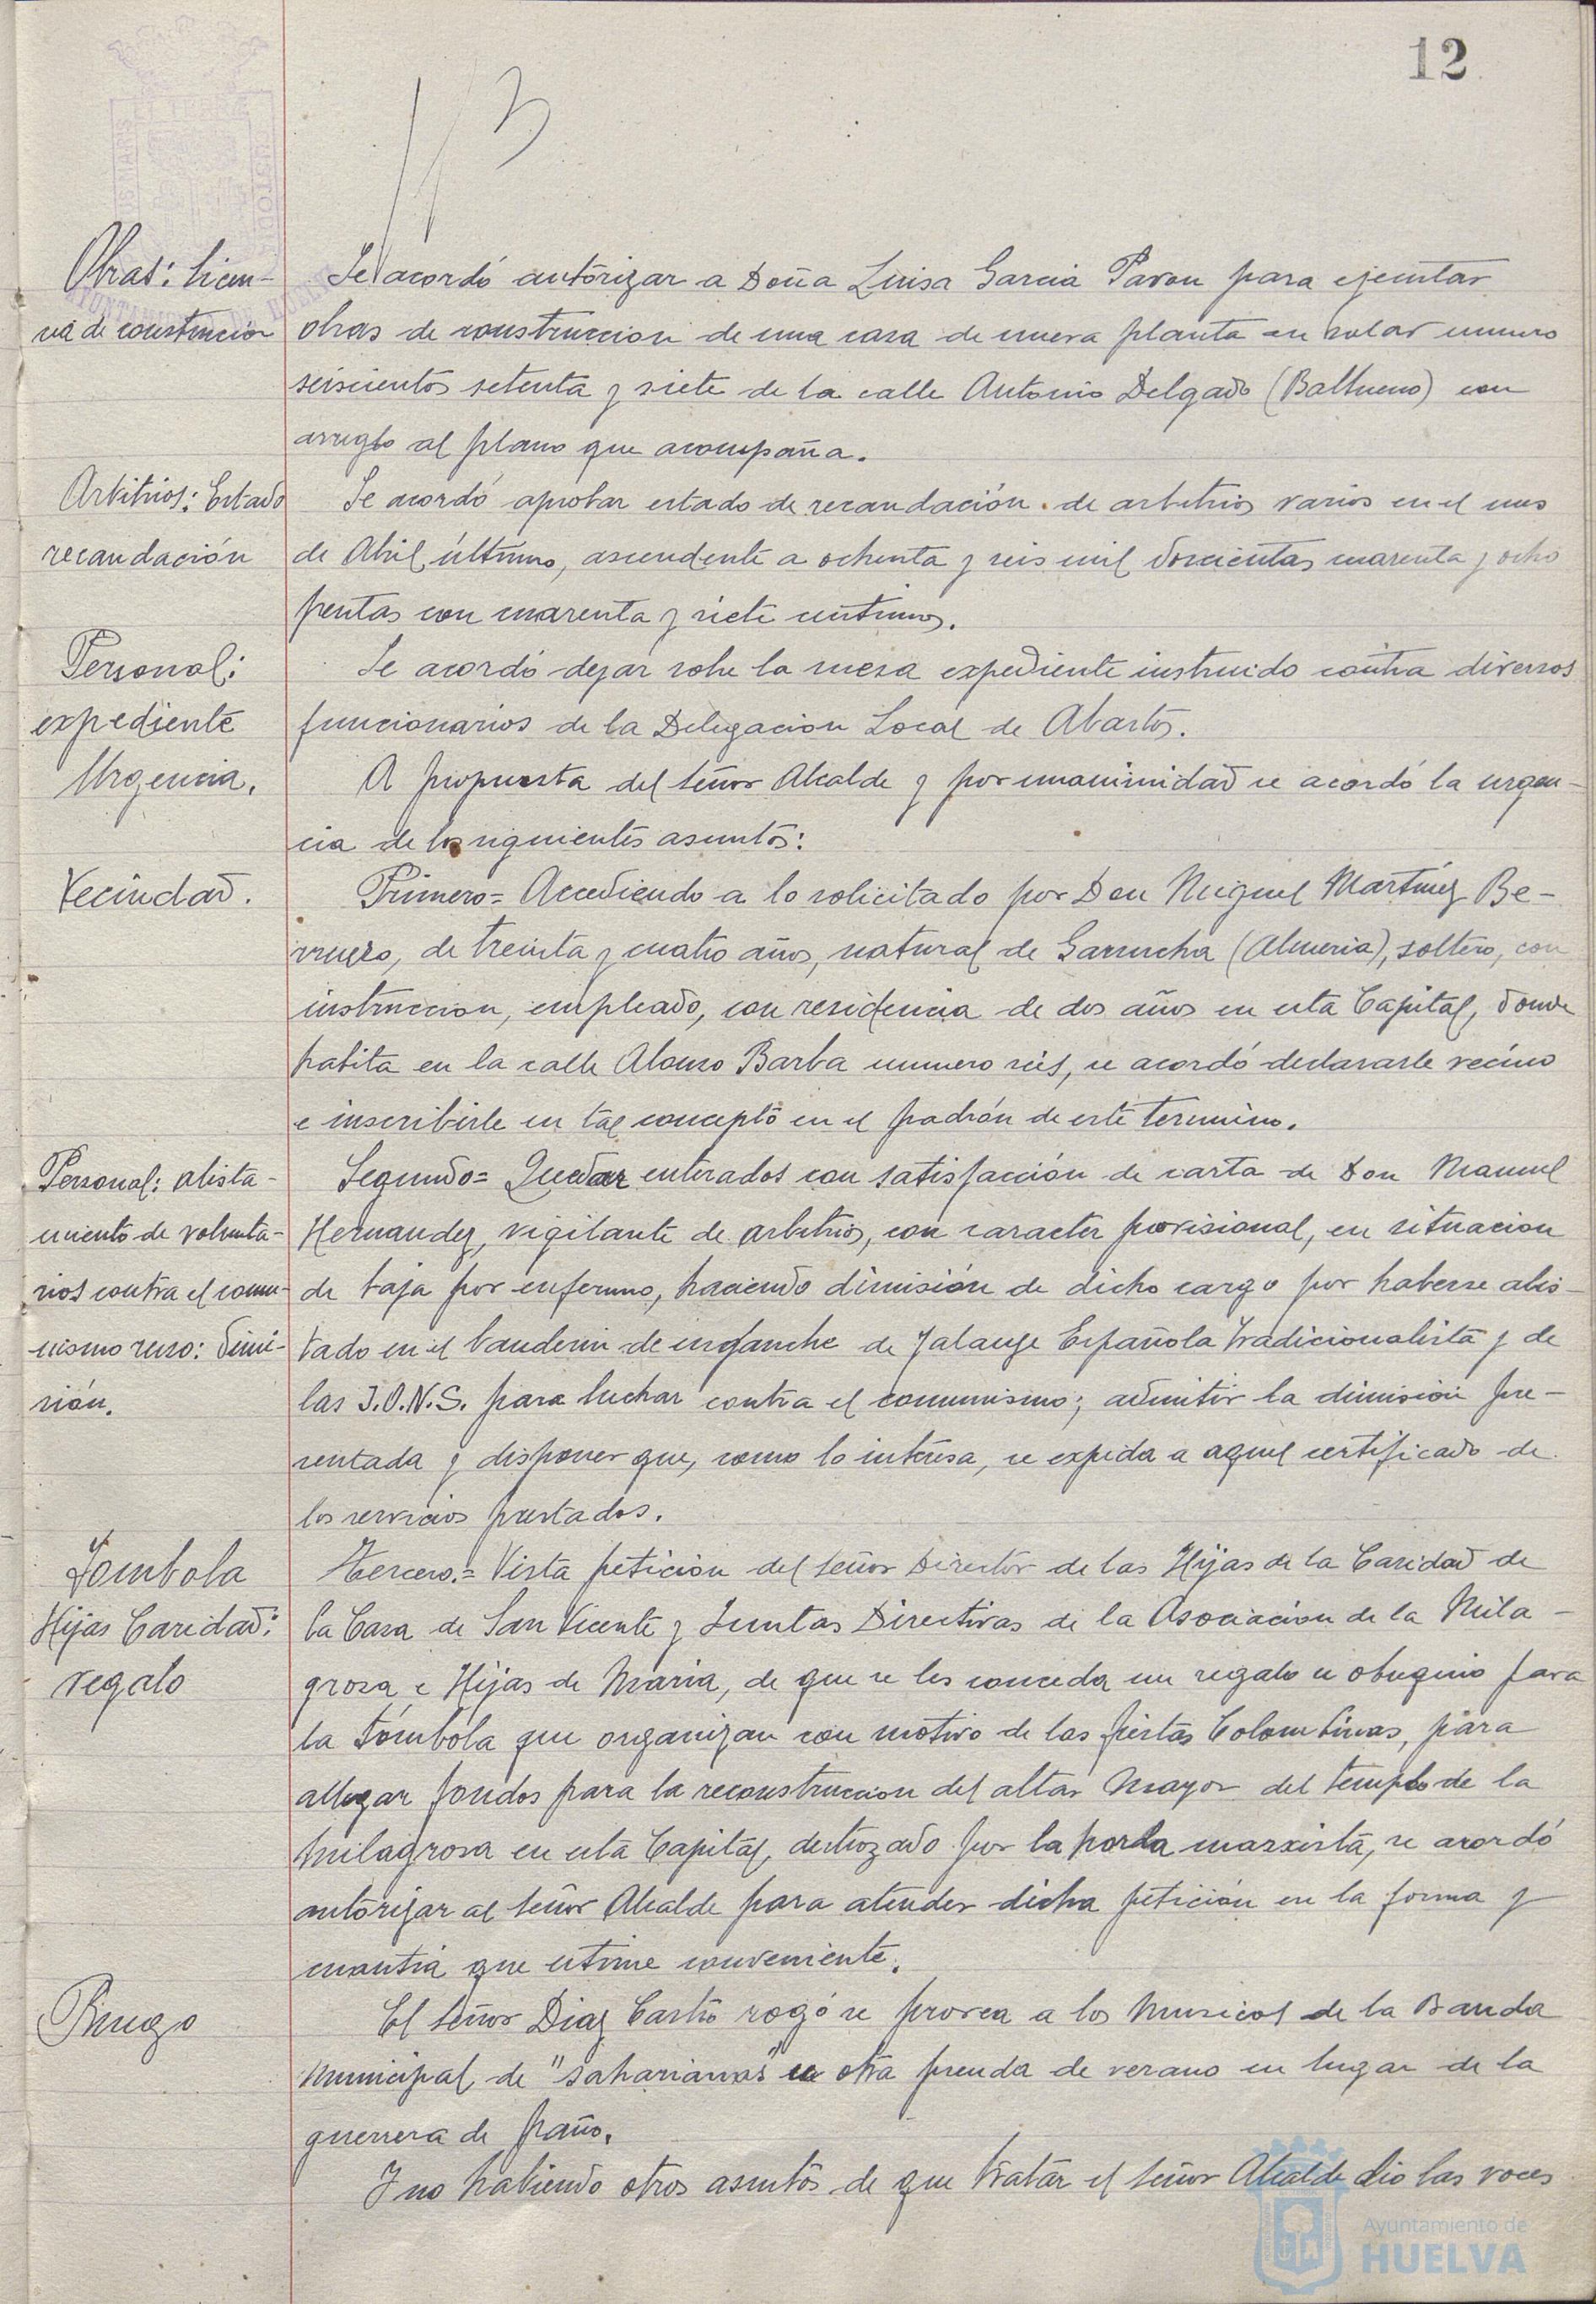 12
Obras: licen-
cia de construccion
Se acordó autorizar a Doña Luisa Garcia Pavon para ejecutar
obras de construccion de una casa de nueva planta en solar numero
seiscientos setenta y siete de la calle Antonio Delgado (Baltueno) con
arreglo al plano que acompaña.
Arbitrios: Estado
recaudación
Se acordó aprobar estado de recaudación de arbitrios varios en el mes
de Abril último, ascendente a ochenta y seis mil doscientas cuarenta y ocho
pesetas con cuarenta y siete centimos.
Personal:
expediente
Se acordó dejar sobre la mesa expediente instruido contra diversos
funcionarios de la Delegacion Local de Abastos.
Urgencia.
A propuesta del señor Alcalde y por unanimidad se acordó la urgen-
cia de los siguientes asuntos:
Vecindad.
Primero= Accediendo a lo solicitado por Don Miguel Martinez Be-
rruezo, de treinta y cuatro años, natural de Garrucha (Almeria), soltero, con
instruccion, empleado, con residencia de dos años en esta Capital, donde
habita en la calle Alonso Barba numero seis, se acordó declararle vecino
e inscribirle en tal concepto en el padrón de este termino.
Personal: alista-
miento de volunta-
rios contra el comu-
nismo ruso: dimi-
sión.
Segundo= Quedar enterados con satisfacción de carta de Don Manuel
Hernandez, vigilante de arbitrios, con caracter provisional, en situacion
de baja por enfermo, haciendo dimisión de dicho cargo por haberse alis-
tado en el banderin de enganche de Falange Española Tradicionalista y de
las J.O.N.S. para luchar contra el comunismo; admitir la dimisión pre-
sentada y disponer que, como lo interesa, se expida a aquel certificado de
los servicios prestados.
Tombola
Hijas Caridad:
regalo
Tercero.= Vista peticion del señor Director de las Hijas de la Caridad de
la Casa de San Vicente y Juntas Directivas de la Asociacion de la Mila-
grosa e Hijas de Maria, de que se les conceda un regalo u obsequio para
la tómbola que organizan con motivo de las fiestas Colombinas, para
allegar fondos para la reconstruccion del altar Mayor del templo de la
Milagrosa en esta Capital, destrozado por la horda marxista, se acordó
autorizar al señor Alcalde para atender dicha petición en la forma y
cuantia que estime conveniente.
Ruego
El señor Diaz Castro rogó se provea a los Musicos de la Banda
Municipal de "saharianas" u otra prenda de verano en lugar de la
guerrera de paño.
Y no habiendo otros asuntos de que tratar el señor Alcalde dio las voces
Ayuntamiento de
HUELVA